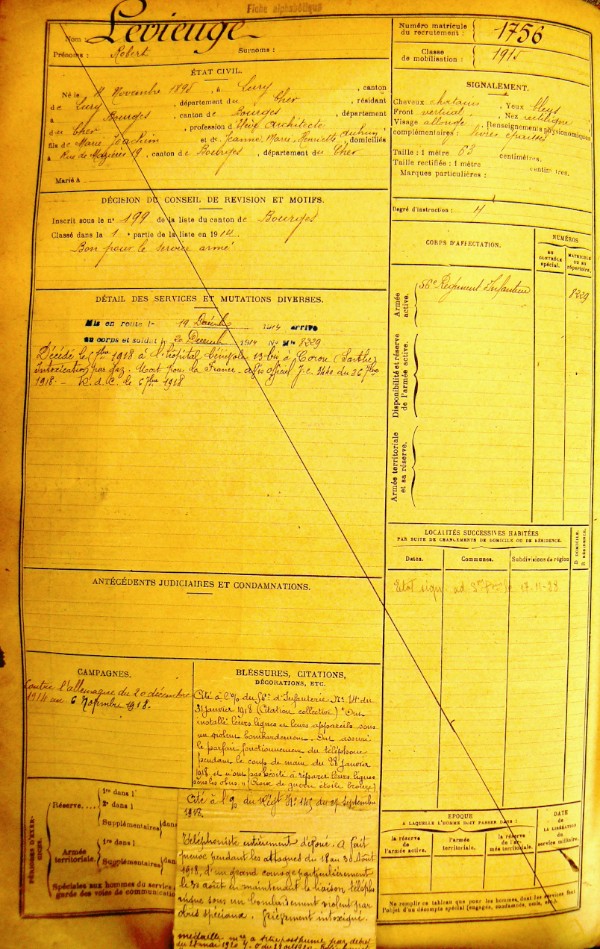 Fiche alphabétique
Nom : Levieuge
Prénoms : Robert Surnoms :
Numéro matricule du recrutement : 1756
Classe de mobilisation : 1915
ÉTAT CIVIL.
Né le Novembre 1895, à Lury, canton
de Lury, département du Cher, résidant
à Bourges, canton de Bourges, département
du Cher, profession d'élève architecte
fils de Marie Joachim et de Jeanne Marie Henriette, domiciliés
à Rue de Mazières 19, canton de Bourges, département du Cher
Marié à
SIGNALEMENT.
Cheveux chatains Yeux bleus
Front vertical Nez rectiligne
Visage allongé Renseignements physionomiques
complémentaires : lèvres épaisses
Taille : 1 mètre 63 centimètres.
Taille rectifiée : 1 mètre centimètres.
Marques particulières :
Degré d'instruction : 4
DÉCISION DU CONSEIL DE REVISION ET MOTIFS.
Inscrit sous le n° 199 de la liste du canton de Bourges
Classé dans la 1e partie de la liste en 1914.
Bon pour le service armé
CORPS D'AFFECTATION.
NUMÉROS
AU CONTRÔLE spécial.
MATRICULE OU AU répertoire.
Armée active.
56e Régiment Infanterie
8229
Disponibilité et réserve de l'armée active.
Armée territoriale et sa réserve.
DÉTAIL DES SERVICES ET MUTATIONS DIVERSES.
Mis en route le 19 Décemb 1914 arrivé
au corps et soldat le 20 Décemb 1914 No Mle 8229
Décédé le 1918 à l'hôpital bénévole 13 bis à (Sarthe)
Intoxication par gaz. Mort pour la France - avis officiel du 26
1918. - R. d. C. le 6 1918
LOCALITÉS SUCCESSIVES HABITÉES
PAR SUITE DE CHANGEMENTS DE DOMICILE OU DE RÉSIDENCE.
Dates. Communes. Subdivisions de région
D. DOMICILE.
R. RÉSIDENCE.
ANTÉCÉDENTS JUDICIAIRES ET CONDAMNATIONS.
CAMPAGNES.
Contre l'allemagne du 20 décembre
1914 au 6 1918.
BLESSURES, CITATIONS,
DÉCORATIONS, ETC.
Cité à l'O/ du 56e d'Infanterie No du
31 janvier 1918 (Citation collective) "Ont
installé leurs lignes et leurs appareils sous
un violent bombardement. Ont assuré
le parfait fonctionnement du téléphone
pendant le coup de main du 28 janvier
1918 et n'ont pas hésité à réparer leurs lignes
sous les obus." (Croix de guerre étoile bronze)
Cité à l'O/ du Régt No du septembre
1918.
Téléphoniste entièrement dévoué. A fait
preuve pendant les attaques du 18 au 31 Août
1918, d'un grand courage particulièrement
le 31 août en maintenant la liaison téléphonique
sous un bombardement violent par
obus spéciaux. Grièvement intoxiqué.
médaille posthume
Réserve.
1re dans l'
2e dans l'
Supplémentaires dans
Armée territoriale.
1re dans l'
Supplémentaires dans
Spéciales aux hommes du service
garde des voies de communication
ÉPOQUE
A LAQUELLE L'HOMME DOIT PASSER DANS :
la réserve de l'armée active.
l'armée territoriale.
la réserve de l'armée territoriale.
DATE DE LA LIBÉRATION du service militaire.
Ne remplir ce tableau que pour les hommes dont les services font
l'objet d'un décompte spécial (engagés, condamnés, omis, etc.)